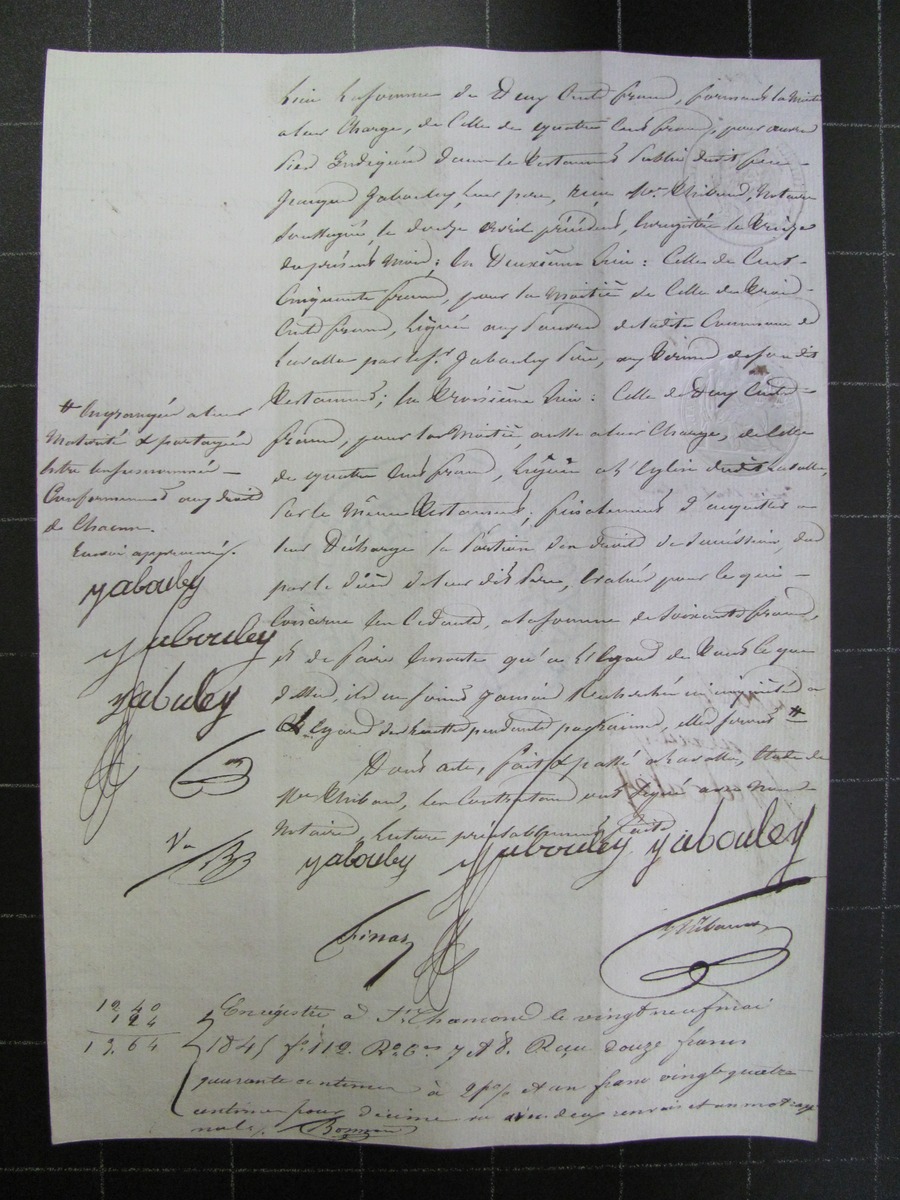 lieu la somme de Deux Cents francs, formant la Moitié
à leur Charge, de Celle de quatre Cents francs, pour
dans le Testament public dudit
Jabouley, leur père, reçu Me Thibaud, Notaire
Soussigné, le douze avril précédent, Enregistré le treize
du présent Mois; En Deuxième lieu: Celle de Cent-
Cinquante francs, pour la Moitié de Celle de Trois-
Cents francs, Léguée aux Pauvres de ladite Commune de
Lavalla par led. Sr. Jabouley Père, aux termes de sondit
Testament; En Troisième lieu: Celle de Deux Cents-
francs, pour la Moitié, aussi à leur Charge, de Celle
de quatre Cents francs, Léguée à l'Eglise dudit Lavalla,
Par le Même Testament; finalement d'acquitter à
leur Décharge la Portion des droits de Succession, dus
par le décès de leur dit Père, évalués pour le qui-
Concerne les Cédants, à la somme de Soixante francs,
et de faire Ensorte qu'à l'Egard de Tout le que
dessus, ils ne soient Jamais Recherchés ni inquiétés. à
L'égard des Récoltes pendantes par racines, elles seront #
Dont acte, fait & passé à Lavalla, Etude de
Me Thibaud, les Contractants ont Signé avec Nous
Notaire, Lecture préalablement faite
# Engrangées à leur
Maturité & partagées
Entre les susnommés-
Conformément aux droits
de Chacun.
Renvoi approuvé.
Jabouley
Jabouley
Jabouley
Jabouley Jabouley Jabouley
Finaz
Thibaud
12 40
1 24
13. 64
Enregistré à St. Chamond le vingt neuf mai
1845 fo. 112. Ro. Ces 7 et 8. Reçu douze francs
quarante centimes à 2 p% et un franc vingt quatre
centimes pour décime
nuls.